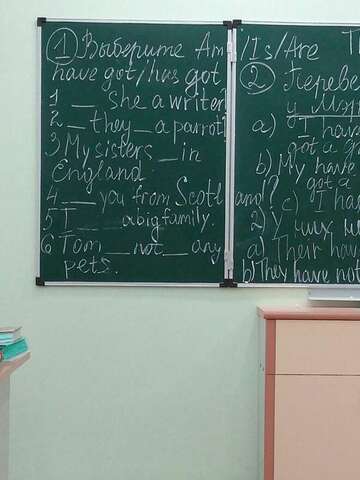 ① Выберите Am/Is/Are
have got/has got
1 __ she a writer?
2 __ they __ a parrot?
3 My sisters __ in
England
4 __ you from Scotland?
5 I ____ a big family.
6 Tom __ not __ any
pets.
②
a) I have
got a
b) My have
got a
c) I ha
2) У них
a) Their hav
b) They have not